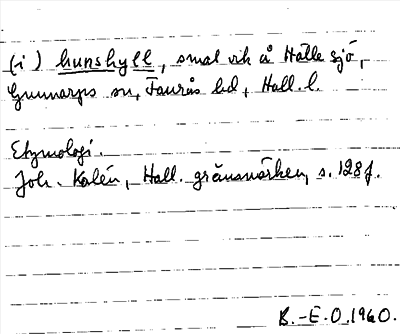 (i) hunshyll, smal vik å Hälle sjö,
Gunnarps sn, Faurås hd, Hall. l.
Etymologi.
Joh. Kalén, Hall. gränsmärken, s. 128 f.
B.-E. O. 1960.